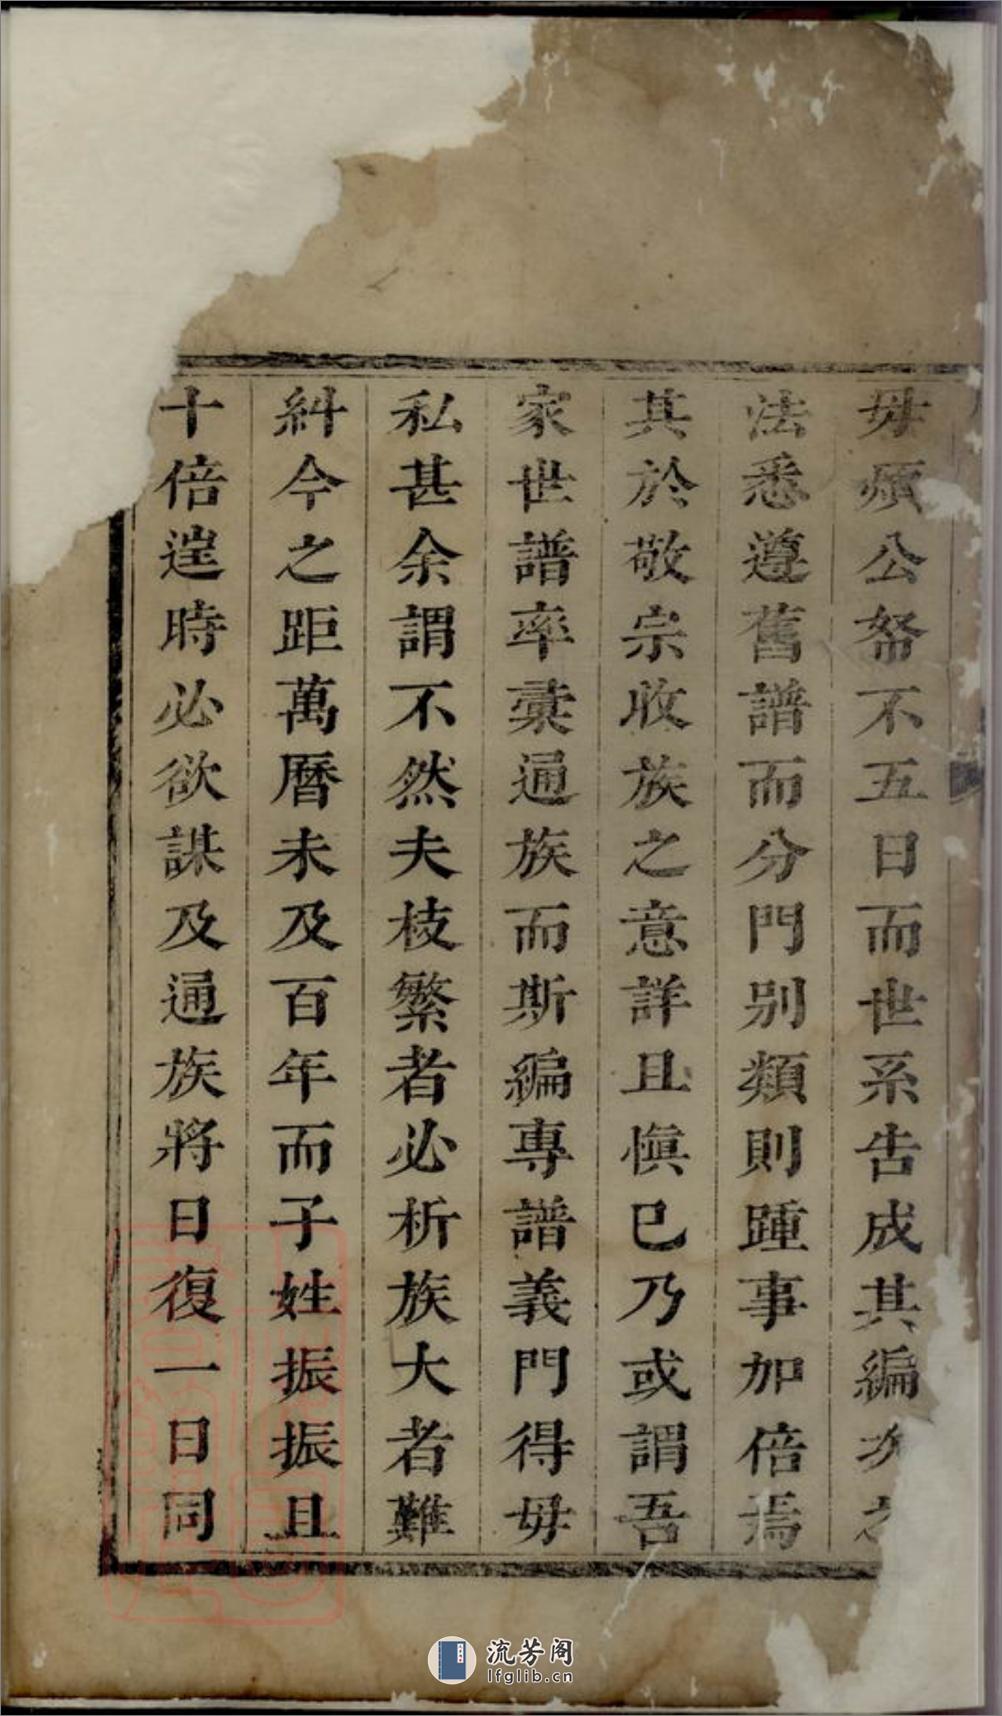 毋煩公帑不五日而世系告成其編次之
法悉遵舊譜而分門別類則踵事加倍焉
其於敬宗收族之意詳且慎已乃或謂吾
家世譜率彙通族而斯編專譜義門得毋
私甚余謂不然夫枝繁者必析族大者難
糾今之距萬曆未及百年而子姓振振且
十倍遑時必欲謀及通族將日復一日同
流芳阁
lfglib.cn